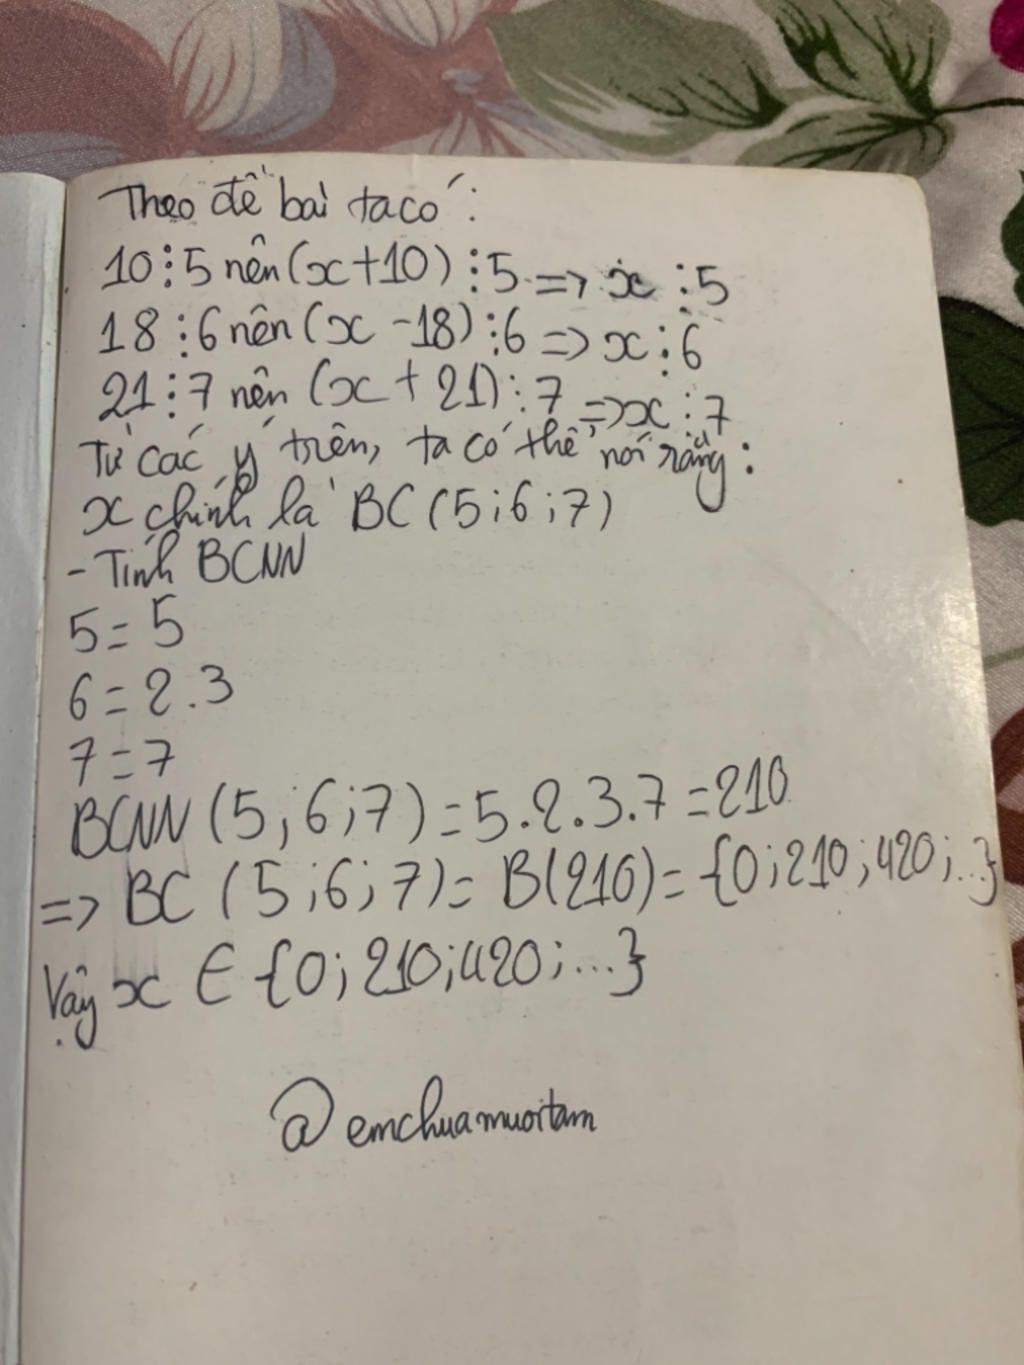 Theo đề bài ta có:
10⋮5 nên (x+10)⋮5 => x⋮5
18⋮6 nên (x-18)⋮6 => x⋮6
21⋮7 nên (x+21)⋮7 => x⋮7
Từ các ý trên, ta có thể nói rằng:
x chính là BC(5;6;7)
- Tính BCNN
5=5
6=2.3
7=7
BCNN(5;6;7)=5.2.3.7=210
=> BC(5;6;7)=B(210)={0;210;420;...}
Vậy x ∈ {0;210;420;...}
@emchuamuoitam